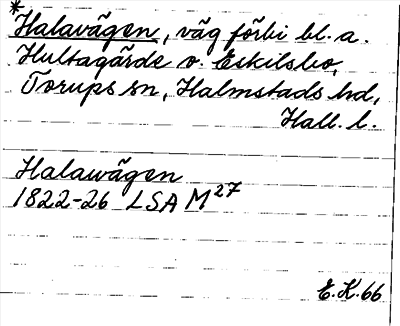 *Halavägen, väg förbi bl. a.
Hultagärde o. Eskilsbo,
Torups sn, Halmstads hd,
Hall. l.
Halawägen
1822-26 LSA M27
E.K.66